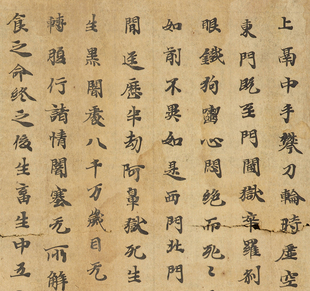 上鬲中手攀刀輪時虛空
東門既至門閫獄卒羅刹
眼鐵狗嚙心悶絕而死〻
如前不異如是西門北門
間逕歷半劫阿鼻獄死生
生黑闇處八千万歲目无
轉腹行諸情闇塞无所解
食之命終之後生畜生中五